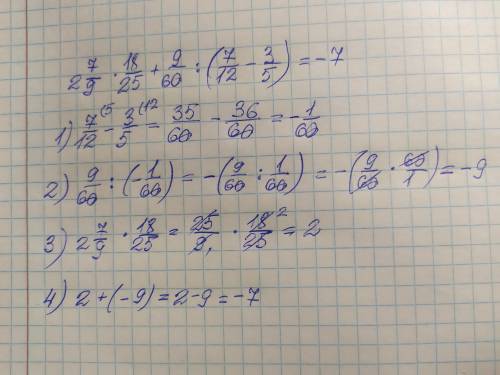 2 7/9 · 18/25 + 9/60 : (7/12 - 3/5) = -7
1) 7/12 (5 - 3/5 (12 = 35/60 - 36/60 = -1/60
2) 9/60 : (-1/60) = -(9/60 : 1/60) = -(9/60 · 60/1) = -9
3) 2 7/9 · 18/25 = 25/9 1 · 18/25 2 = 2
4) 2 + (-9) = 2 - 9 = -7